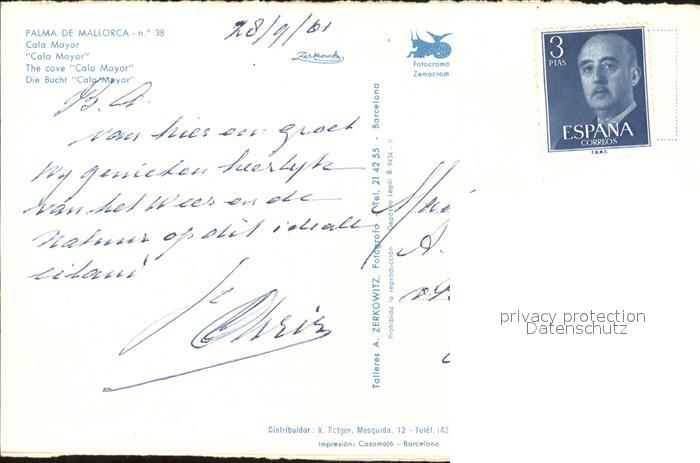 PALMA DE MALLORCA - n.° 38
Cala Mayor
"Cala Mayor"
The cove "Cala Mayor"
Die Bucht "Cala Mayor"
28/9/61
Zerkowitz
Fotocroma
Zemocram
3
PTAS
ESPAÑA
CORREOS
F.N.M.T.
B. A.
van hier een groet
Wij genieten heerlijk
van het Weer en de
Natuur op dit ideale
eiland
Talleres A. ZERKOWITZ, Fotógrafo - Tel. 21 42 55 - Barcelona
Prohibida la reproducción Depósito Legal B. 9434 - II
A.
privacy protection
Datenschutz
Distribuidor: V. Rotger, Mesquida, 12 - Teléf. 143
Impresión: Casamajó - Barcelona